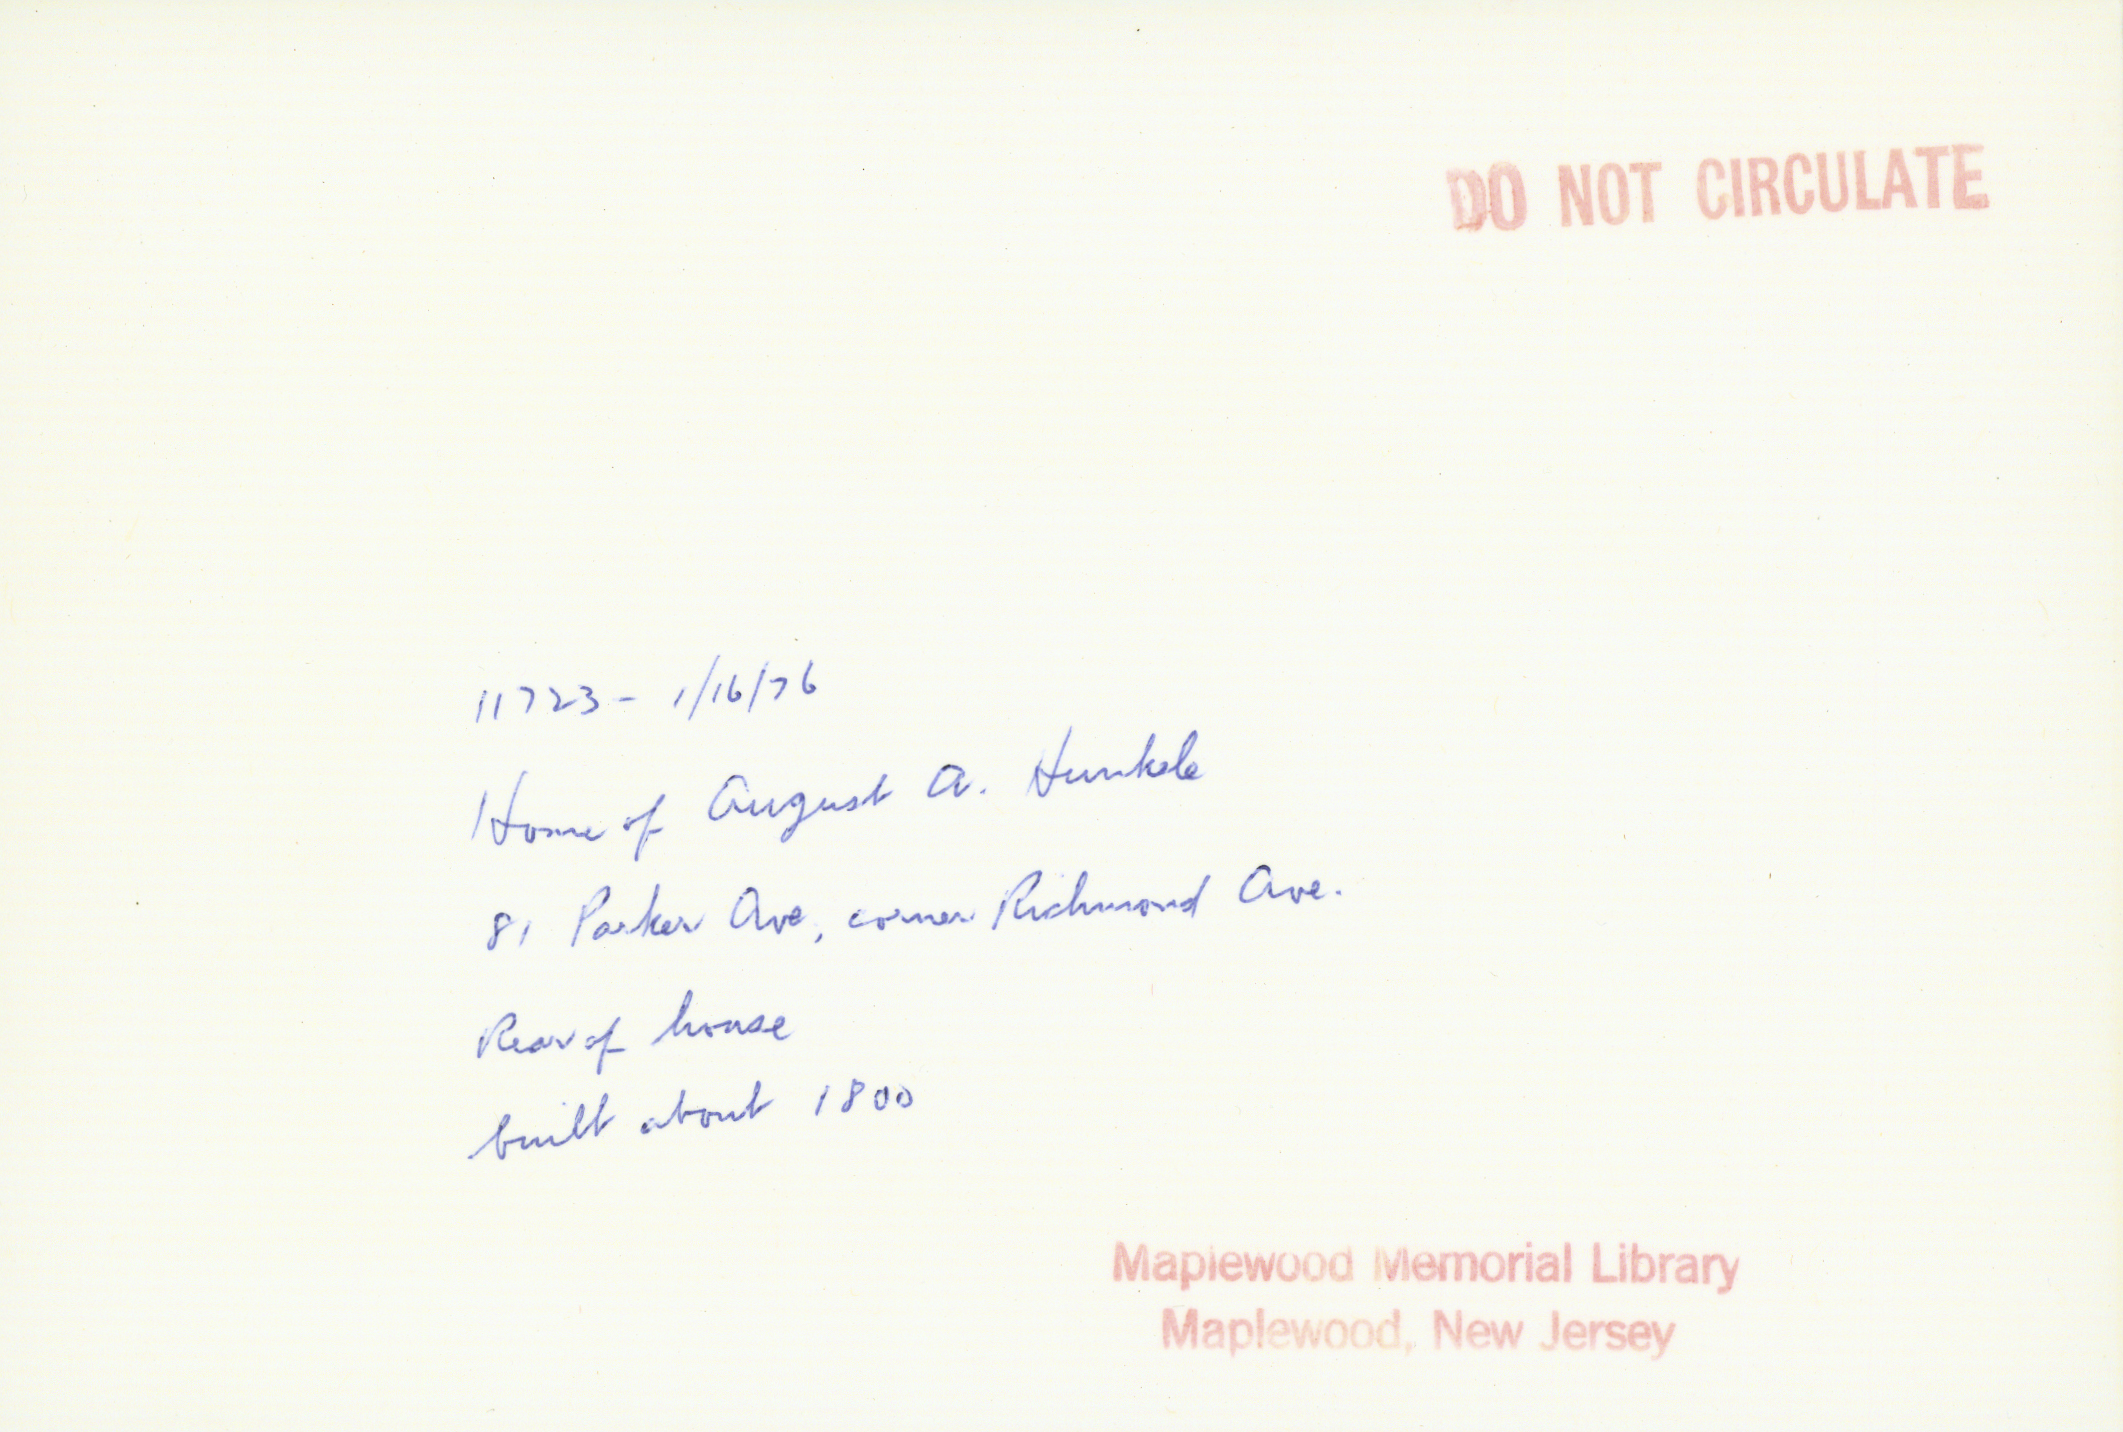 DO NOT CIRCULATE
11723 - 1/16/76
Home of August A. Hunkele
81 Parker Ave, corner Richmond Ave.
Rear of house
built about 1800
Maplewood Memorial Library
Maplewood, New Jersey